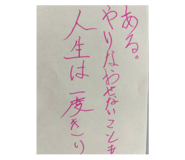 人生は一度きり
やりなおせないことも
ある。